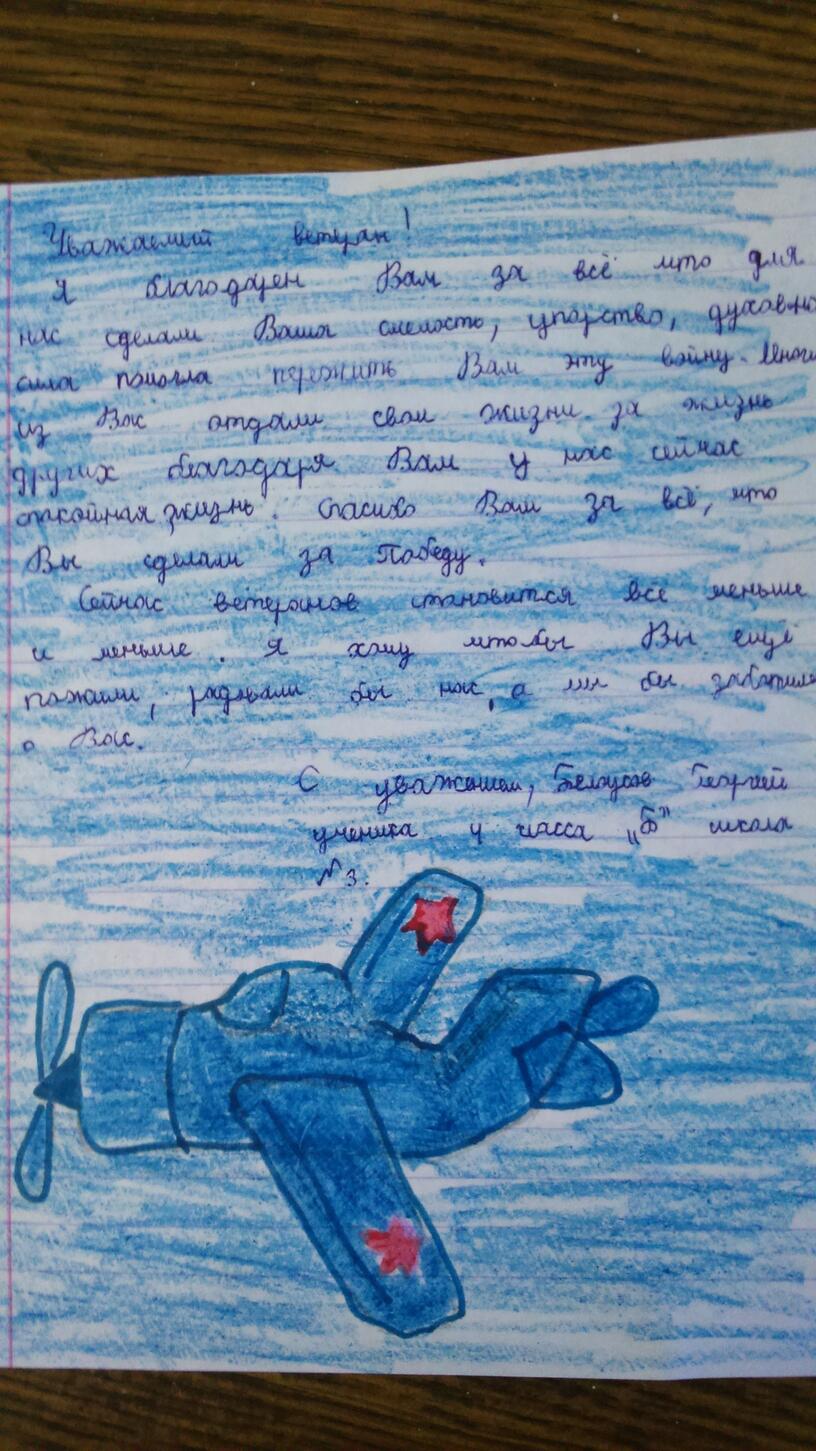 Уважаемый ветеран!
Я благодарен Вам за всё што для
нас сделали Ваша смелость, упорство, духовно
сила помогла пережить Вам эту войну. Многи
из Вас отдали свои жизни за жизнь
других благодаря Вам у нас сейчас
спкойная жизнь. Спасибо Вам за всё, што
Вы сделали за Победу.
Сейчас ветеранов становится всё меньше
и меньше. Я хочу штобы Вы ещё
пожили, радовали бы нас, а мы бы заботили
о Вас.
С уважением, Белоусов Георгий
ученика 4 класса „Б” школа
№3.